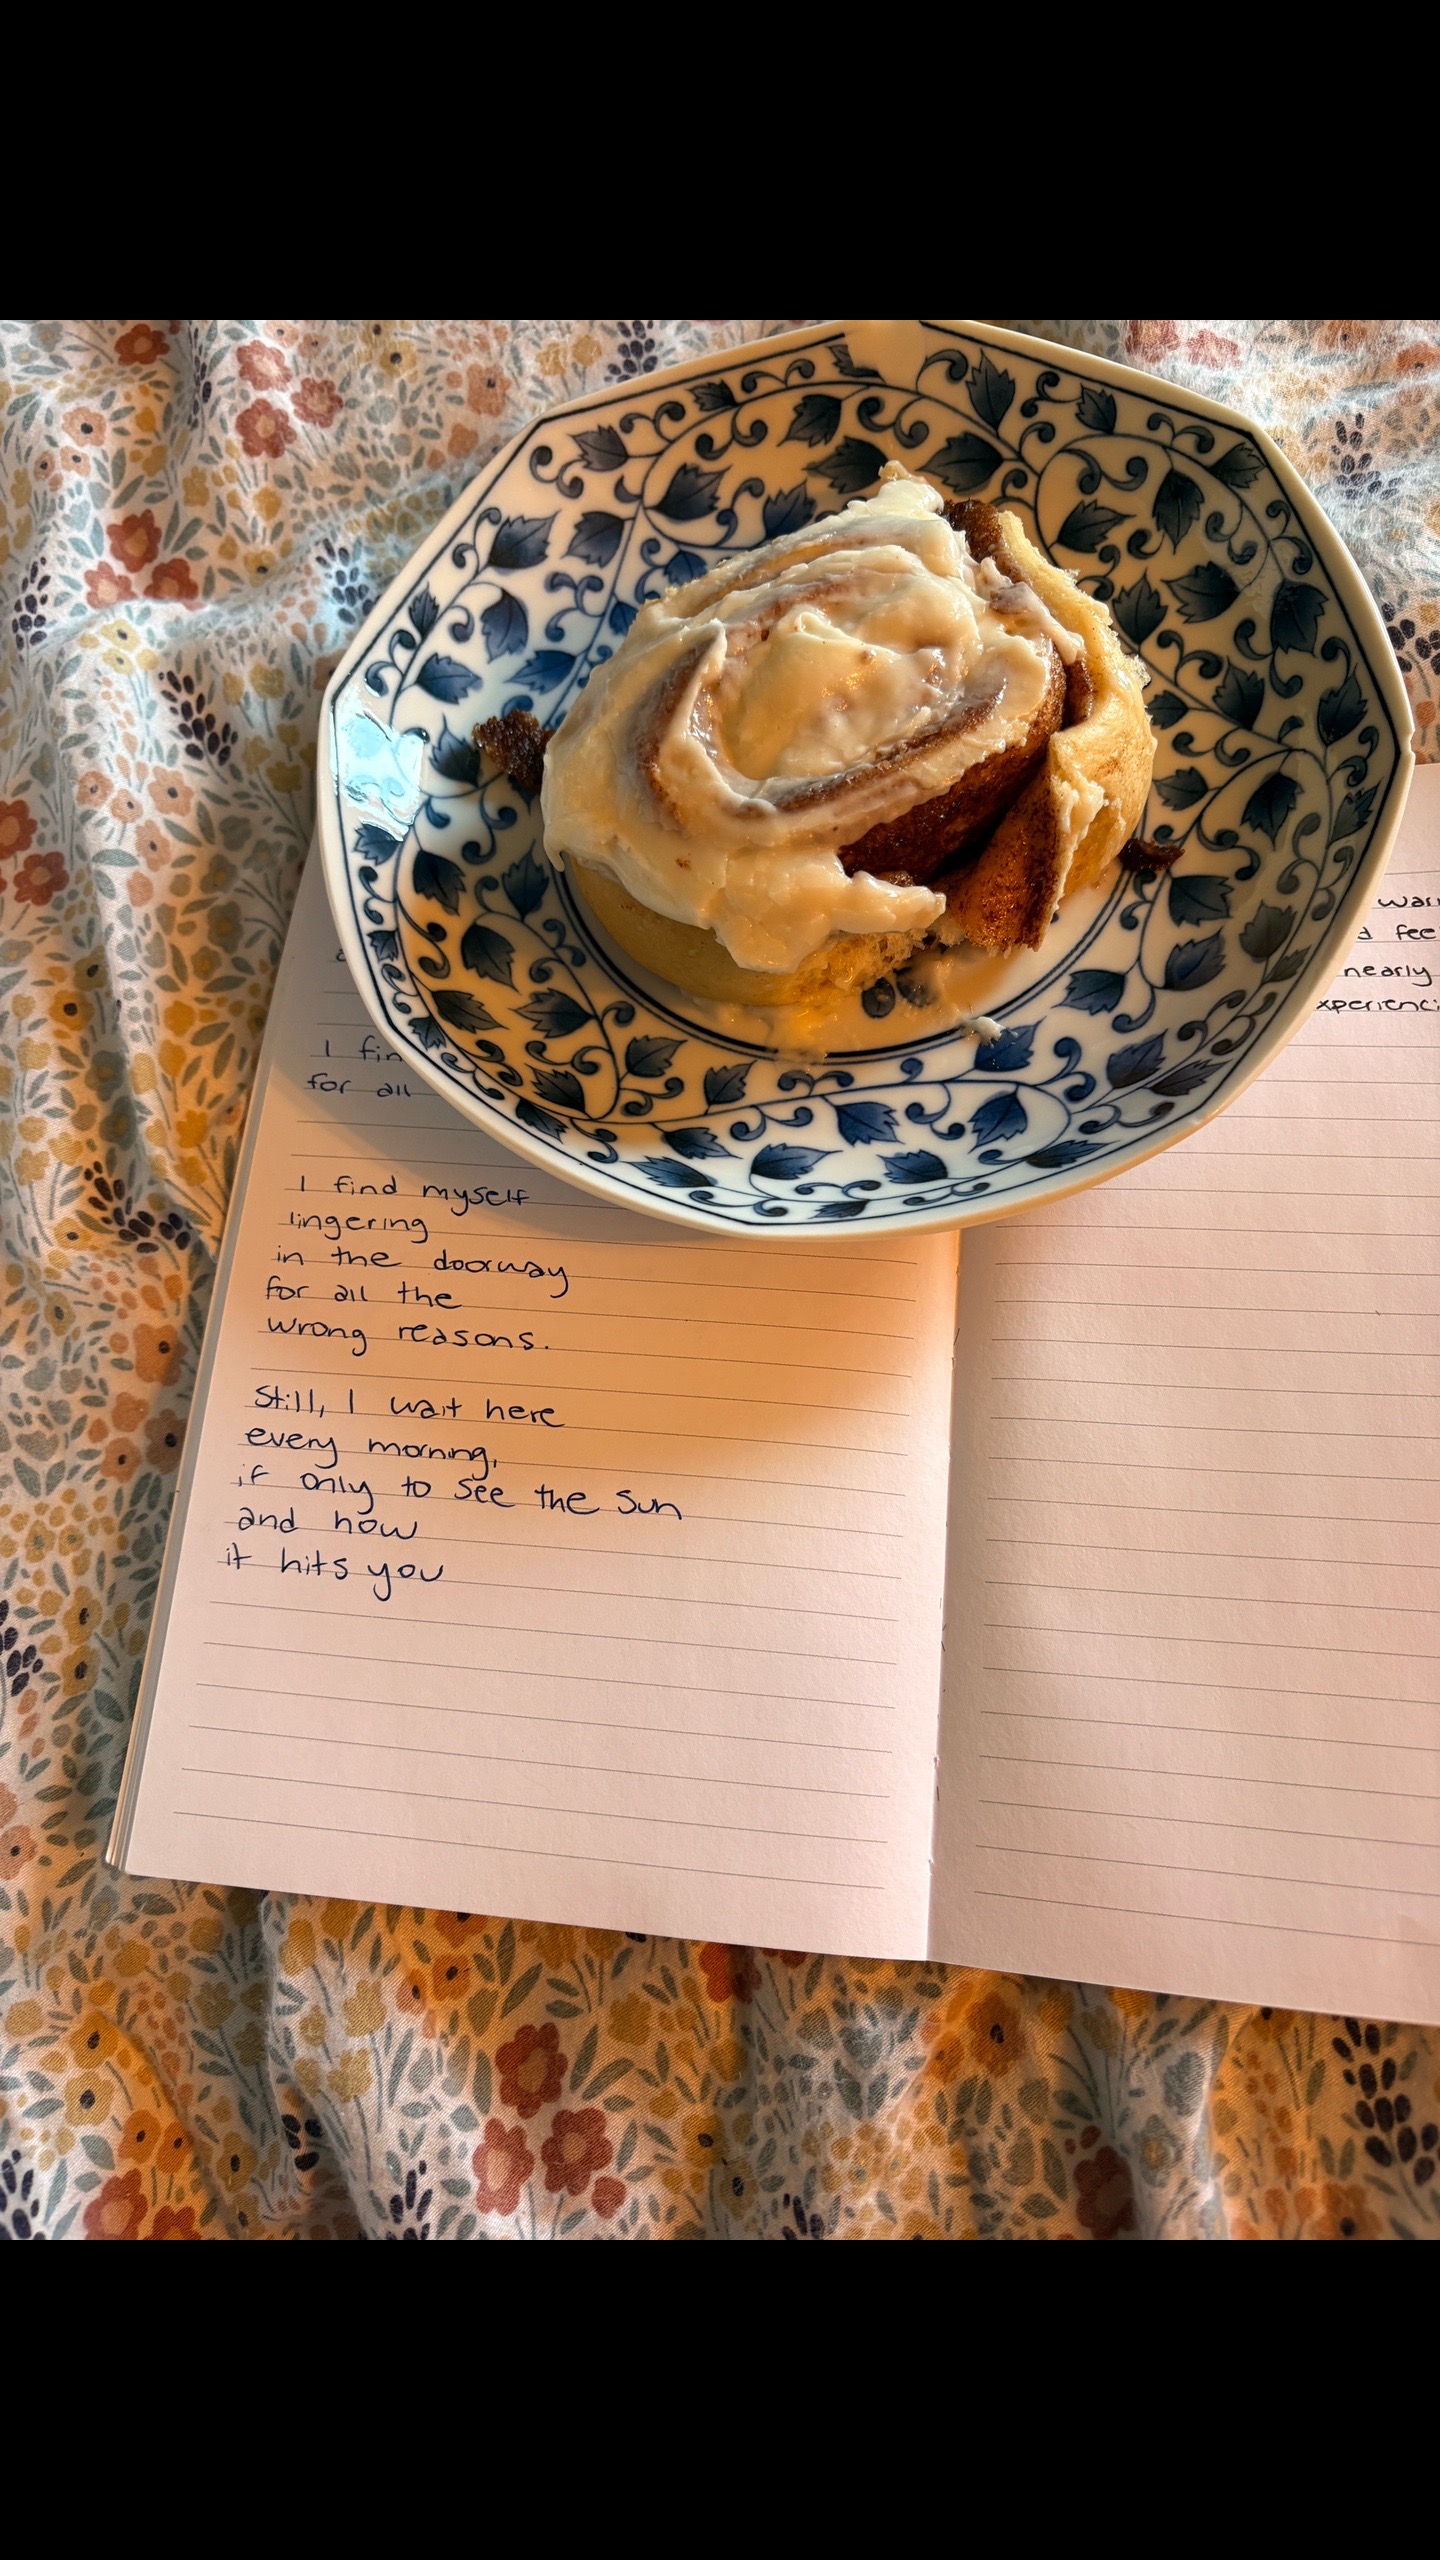 I
for all
I find myself
lingering
in the doorway
for all the
wrong reasons.
Still, I wait here
every morning,
if only to see the sun
and how
it hits you
nearly